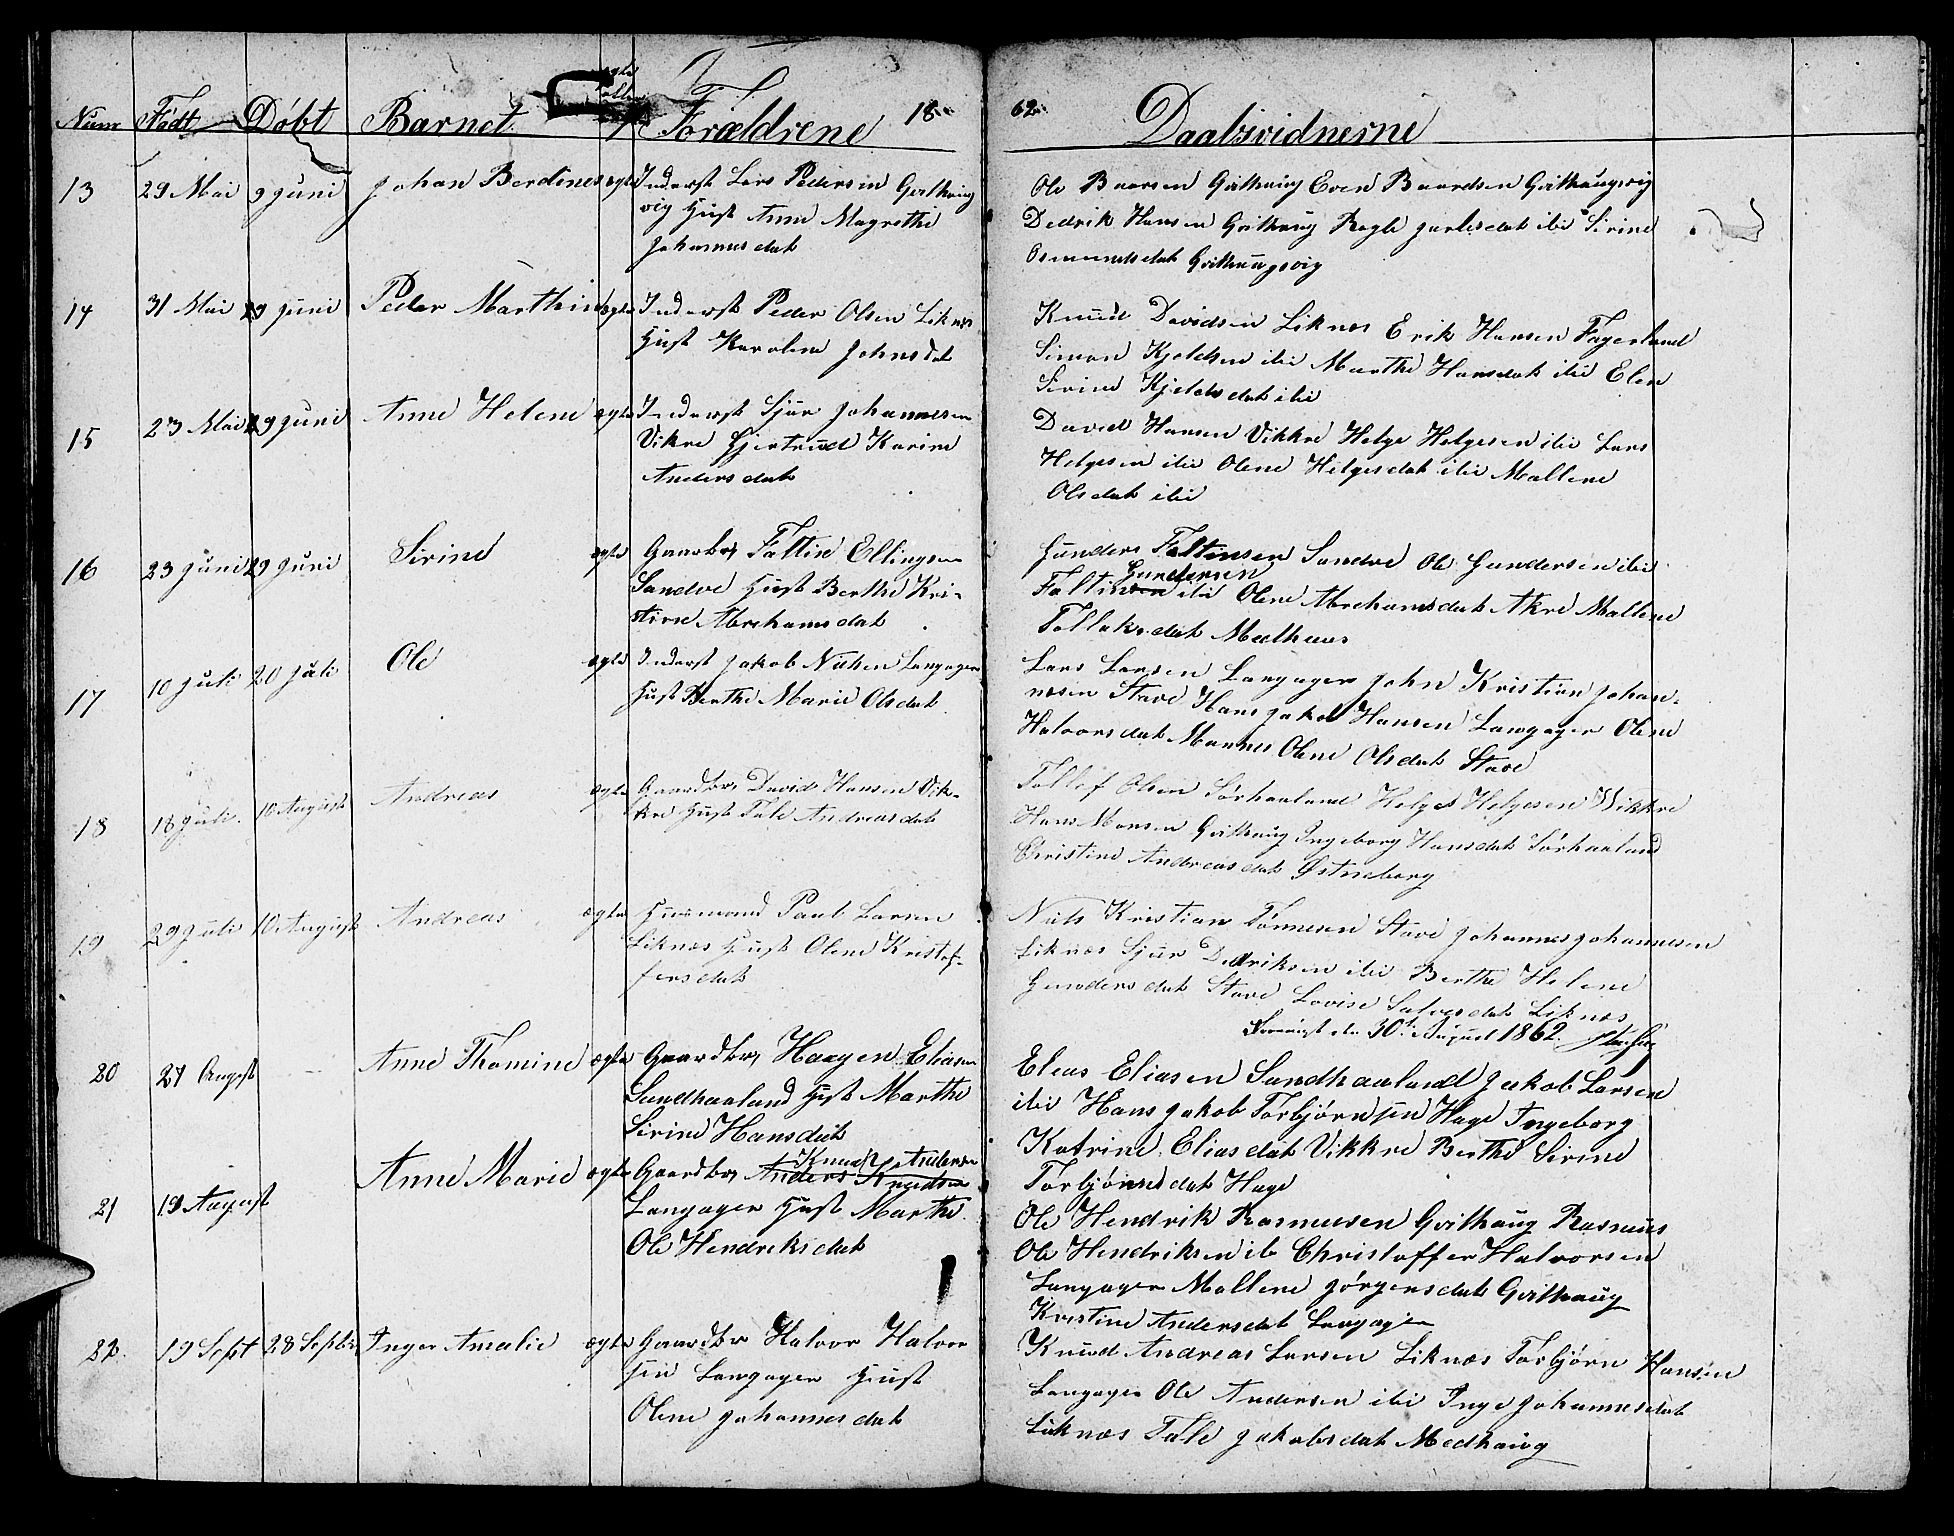 Num Født Døbt Barnet ægte Forældrene 18
62. Daabsvidnerne
13 29 Mai 9 Juni Johan Berdines ægte Inderst Lars Pedersen Gvithaug
vig Hust Anne Magrethe
Johannesdat
Ole Baarsen Gvithaug Even Baardsen Gvithaugvig
Dedrik Hansen Gvithaug Ragle Jarlesdat ibi Sirine
Osmundsdat Gvithaugsvig
14 31 Mai 29 Juni Peder Marthin ægte Inderst Peder Olsen Liknes
Hust Karoline Johnsdat
Knud Davidsen Liknes Erik Hansen Fagerland
Simon Kjeldsen ibi Marthe Hansdat ibi Elen
Sirine Kjeldsdat ibi
15 23 Mai 29 Juni Anne Helene ægte Inderst Sjur Johannesen
Vikre Gjertrud Karine
Andersdat
David Hansen Vikkre Helge Helgesen ibi Lars
Helgesen ibi Olene Helgesdat ibi Mallene
Olsdat ibi
16 23 Juni 29 Juni Sirine ægte Gaardbr, Faltin Ellingsen
Sandve Hust Berthe Kri-
stine Abrehamsdat
Gunders Faltinsen Sandve Ole Gundersen ibi
Gundersen
Faltinsen ibi Olene Abrehamsdat Akre Mallene
Tollaksdat Medhaus
17 10 Juli 20 Juli Ole ægte Inderst Jakob Nielsen Langager
Hust Berthe Marie Olsdat
Lars Larsen Langager John Kristian Johan-
nesen Stave Hans Jakob Hansen Langager Olene
Halvorsdat Mannes Olene Olsdat Stave
18 18 Juli. 10 August Andreas ægte Gaardbr, David Hansen Vik-
kre Hust Tale Andreasdat
Tollef Olsen Sørhaaland Helge Helgesen Wikkre
Hans Monsen Gvithaug Ingeborg Hansdat Sørhaaland
Christine Andreasdat Østneborg
19 29 Juli 10 August Andreas ægte Huusmand Paul Larsen
Liknes Hust Olene Kristof-
fersdat
Niels Kristian Tønnesen Stave Johannes Johannesen
Liknes Sjur Dedriksen ibi Berthe Helene
Gundersdat Stave Lovise Salvesdat Liknes
den 30te August 1862.
20 27 August Anne Thomine ægte Gaardbr, Haagen Eliasen
Sundhaaland Hust Marthe
Sirine Hansdat
Elias Eliasen Sundhaaland Jakob Larsen
ibi Hans Jakob Torbjørnsen Hage Ingeborg
Katrine Eliasdat Vikkre Berthe Serine
Torbjørnsdat Hage
21 19 August Anne Marie ægte Gaardbr, Anders Knudsen
Knud Andersen
Langager Hust Marthe
Ole Hendreksdat
Ole Hendrik Rasmusen Gvithaug Rasmus
Ole Hendriksen ib Christoffer Halvorsen
Langager Mallene Jørgensdat Gvithaug
Kristine Andersdat Langager
22 19 Sept 28 Septbr Inger Amalie ægte Gaardbr Halvor Halvor
sen Langager Hust
Olene Johannesdat
Knud Andreas Larsen Liknes Torbjørn Hansen
Langager Ole Andersen ibi Inge Johannesdat
Liknes Tale Jakobsdat Medhaug